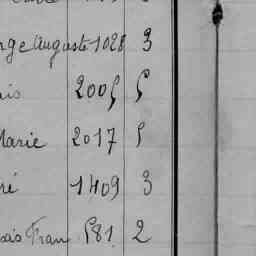 rge Auguste 1028 3
is 2005 5
Marie 2017 5
ré 1409 3
ois Fran 581 2